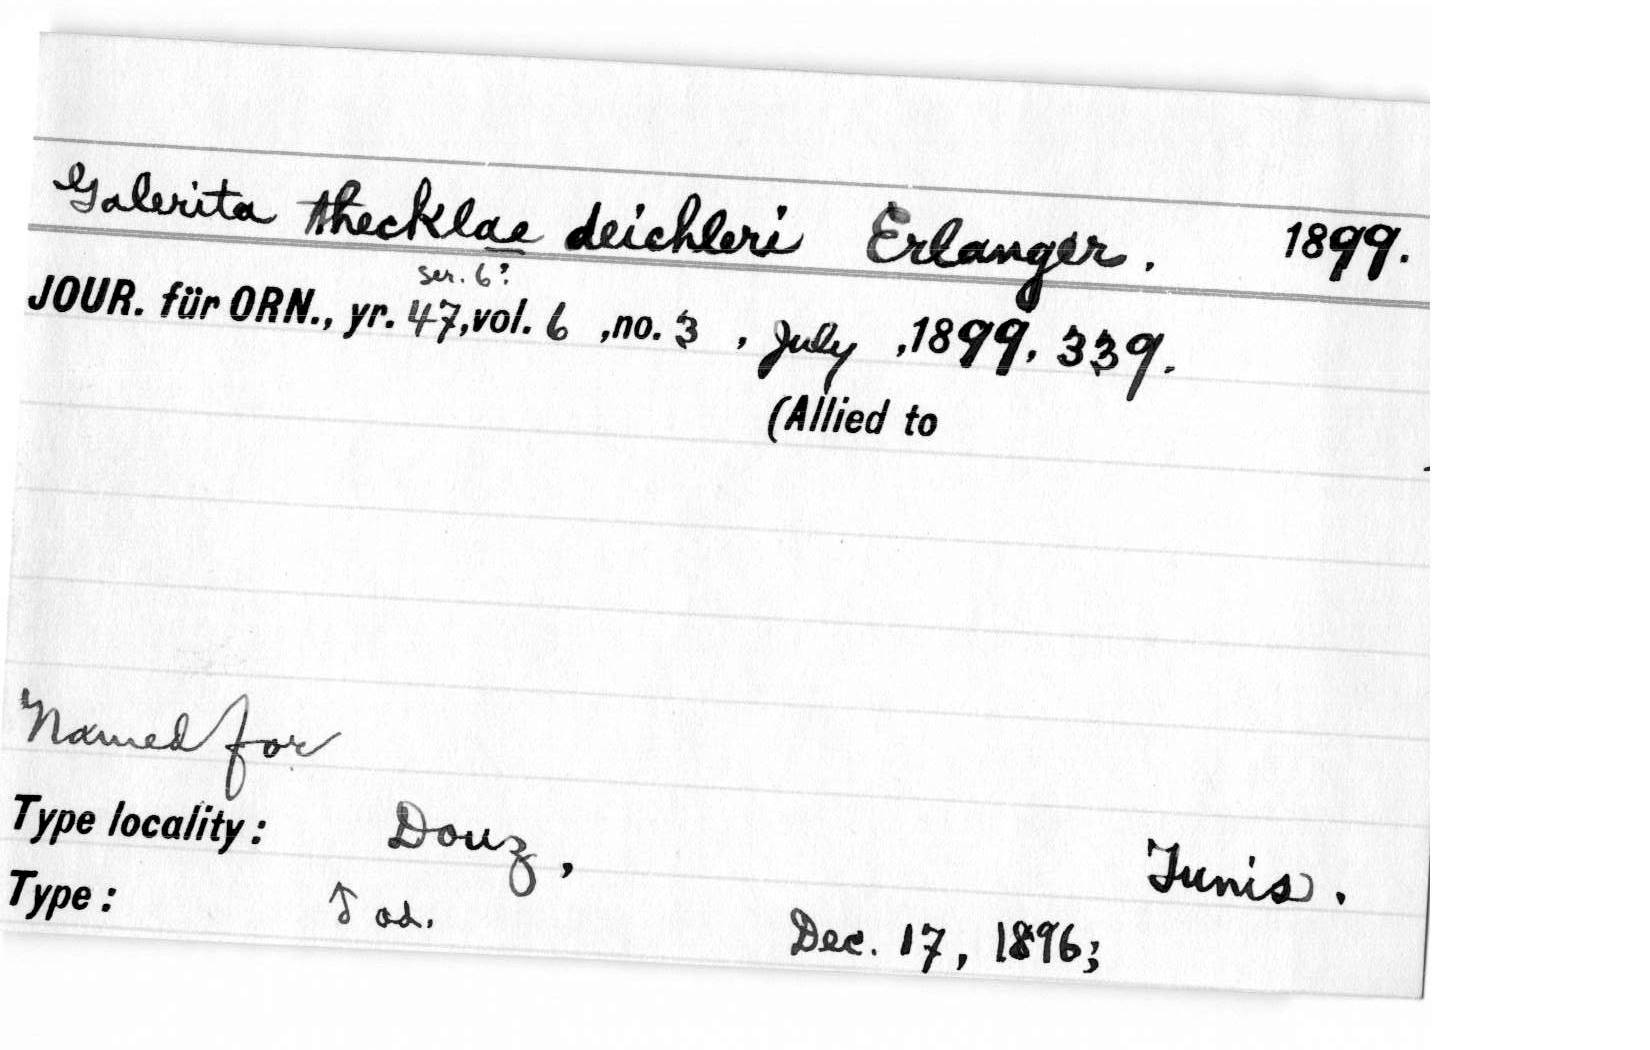 Galerita thecklae deichleri Erlanger. 1899.
ser. 6?
JOUR. für ORN., yr. 47, vol. 6, no. 3, July, 1899, 339.
(Allied to
Named for
Type locality: Douz, Tunis.
Type: ♂ ad. Dec. 17, 1896;